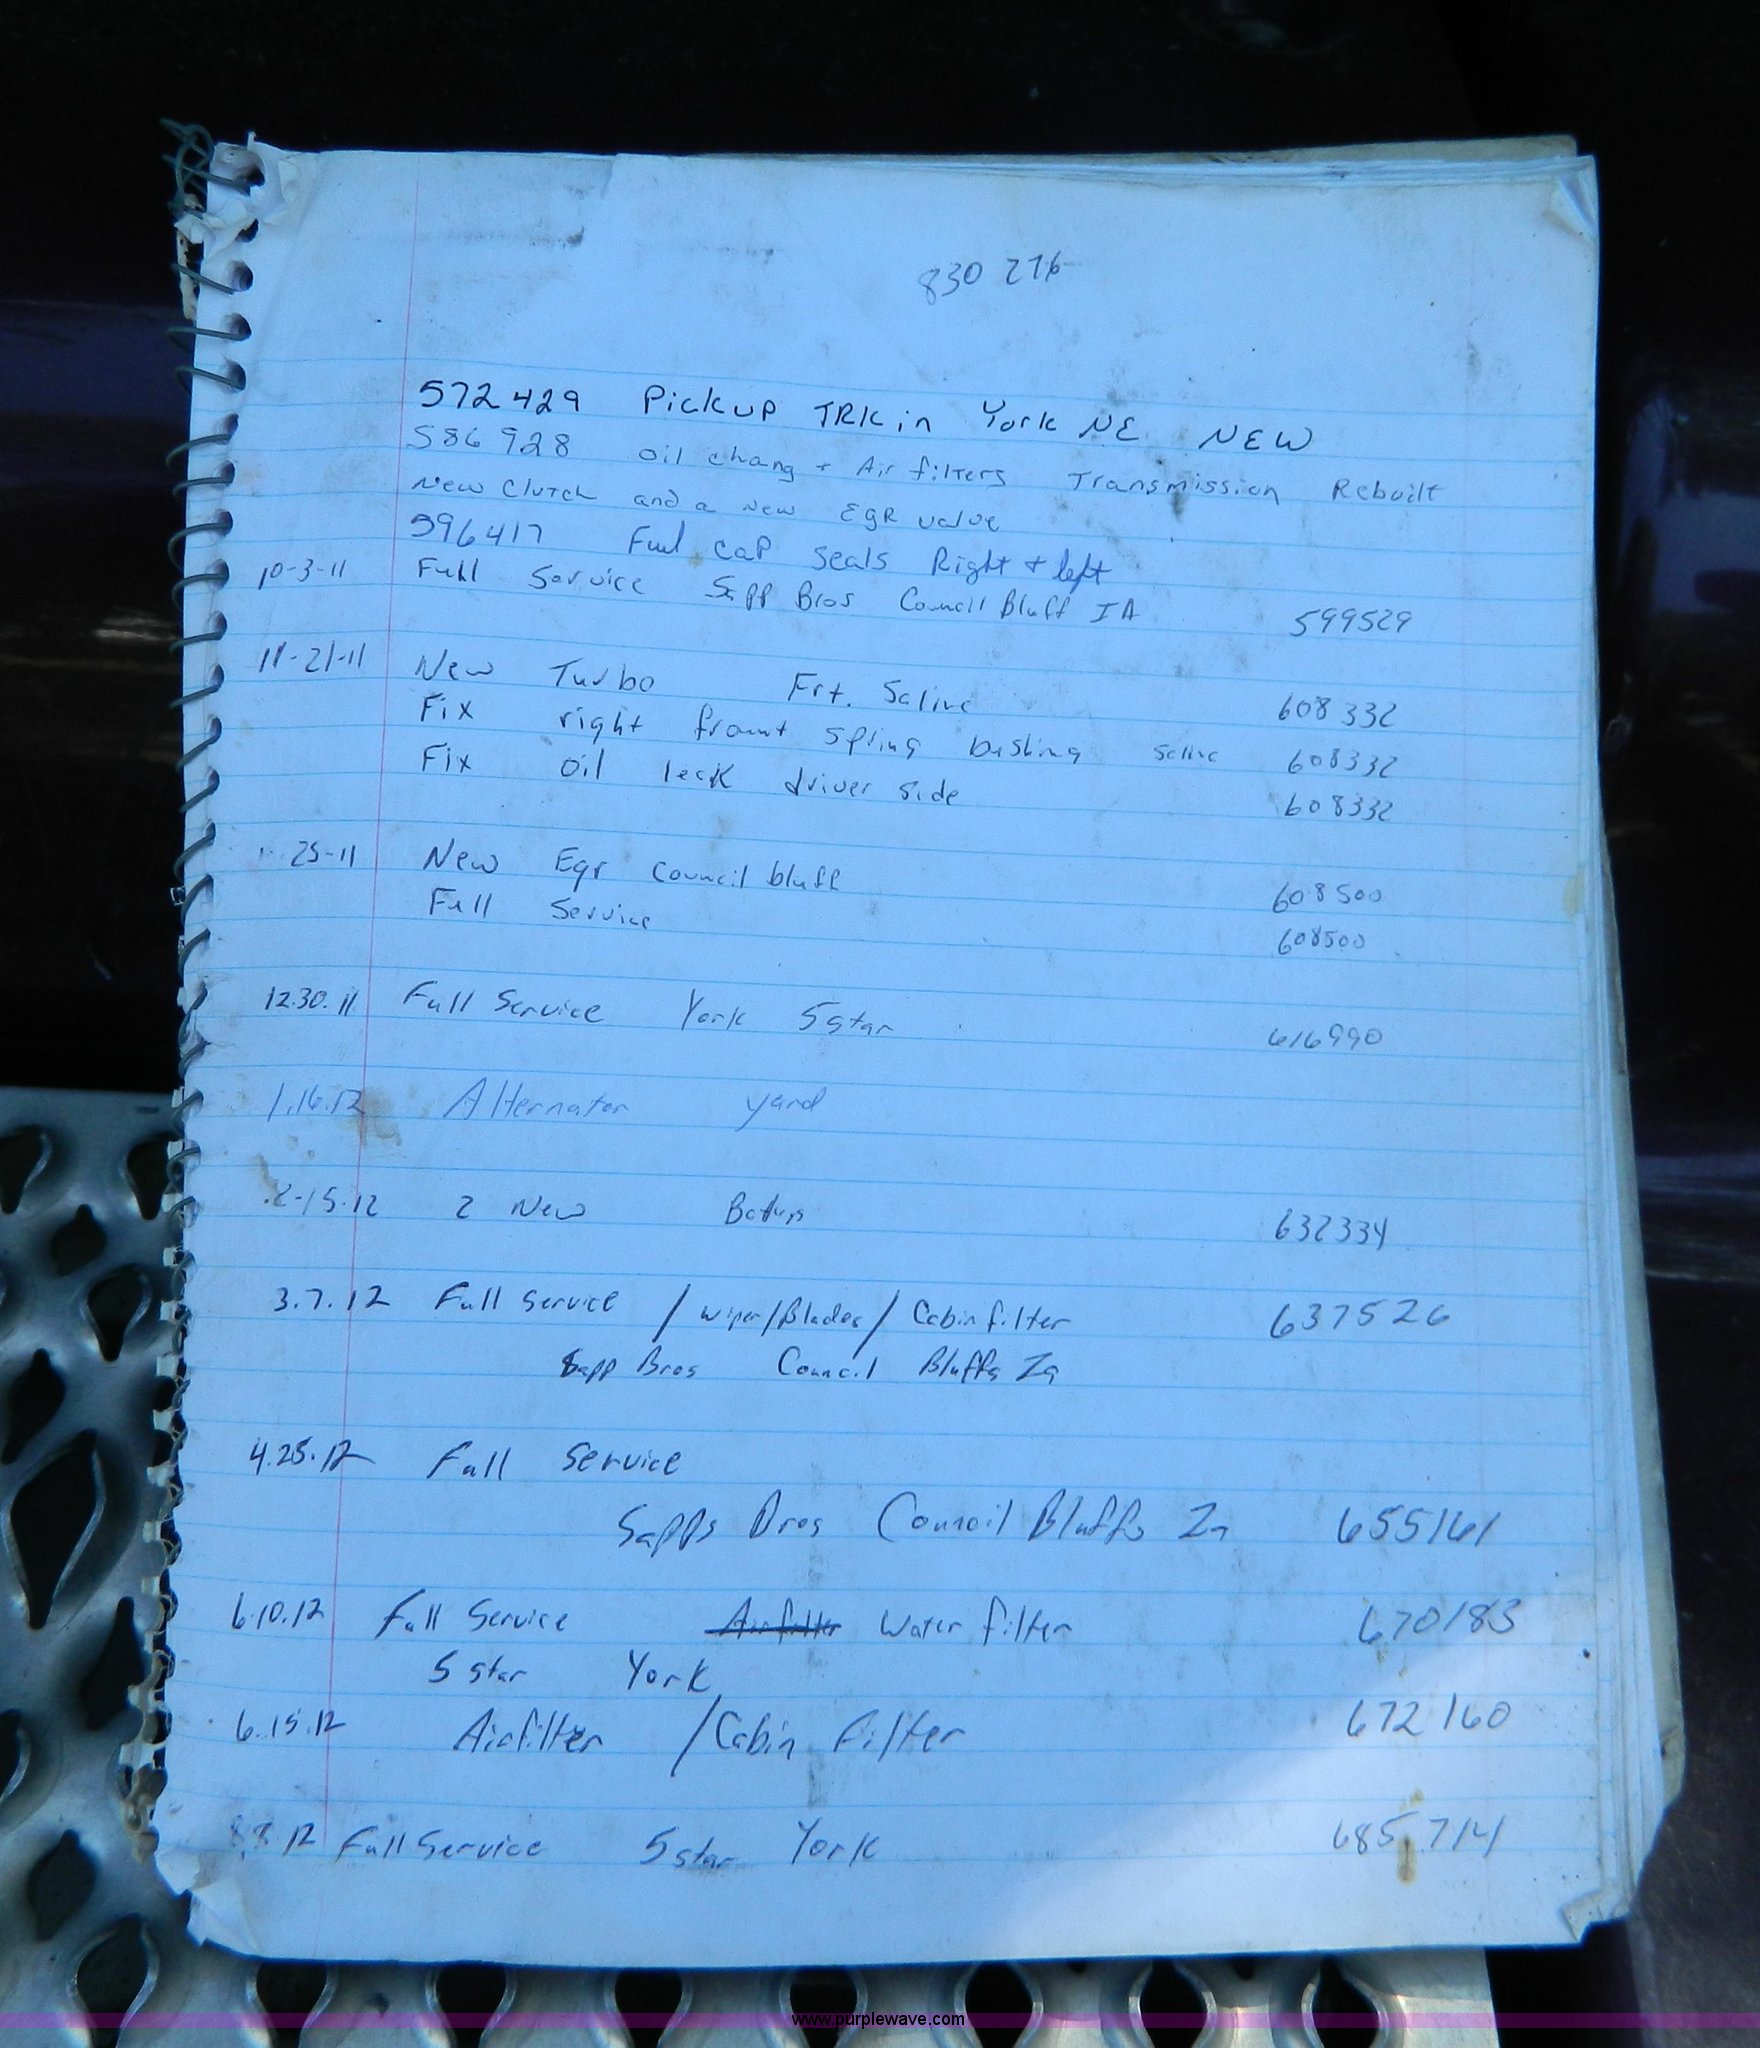 830 276
572429 Pickup TRK in York NE NEW
586928 oil chang + Air filters Transmission Rebuilt
New Clutch and a New EgR valve
596417 Fuel cap seals Right + left
10-3-11 Full Service Sapp Bros Council Bluff IA 599529
11-21-11 New Turbo Frt. Saline 608332
Fix right frount spring bushing Saline 608332
Fix oil leak driver side 608332
25-11 New Egr Council bluff 608500
Full Service 608500
12.30.11 Full Service York 5 star 616990
1.16.12 Alternator yard
2-15.12 2 New 632334
3.7.12 Full Service / Wiper/Blades/ Cabin filter 637526
Sapp Bros Council Bluffs Ia
4.25.12 Full Service
Sapps Bros Council Bluffs Ia 655161
6.10.12 Full Service Air filter Water filter 670183
5 star York
6.15.12 Airfilter / Cabin Filter 672160
8.8.12 Full Service 5 star York 685,714
www.purplewave.com